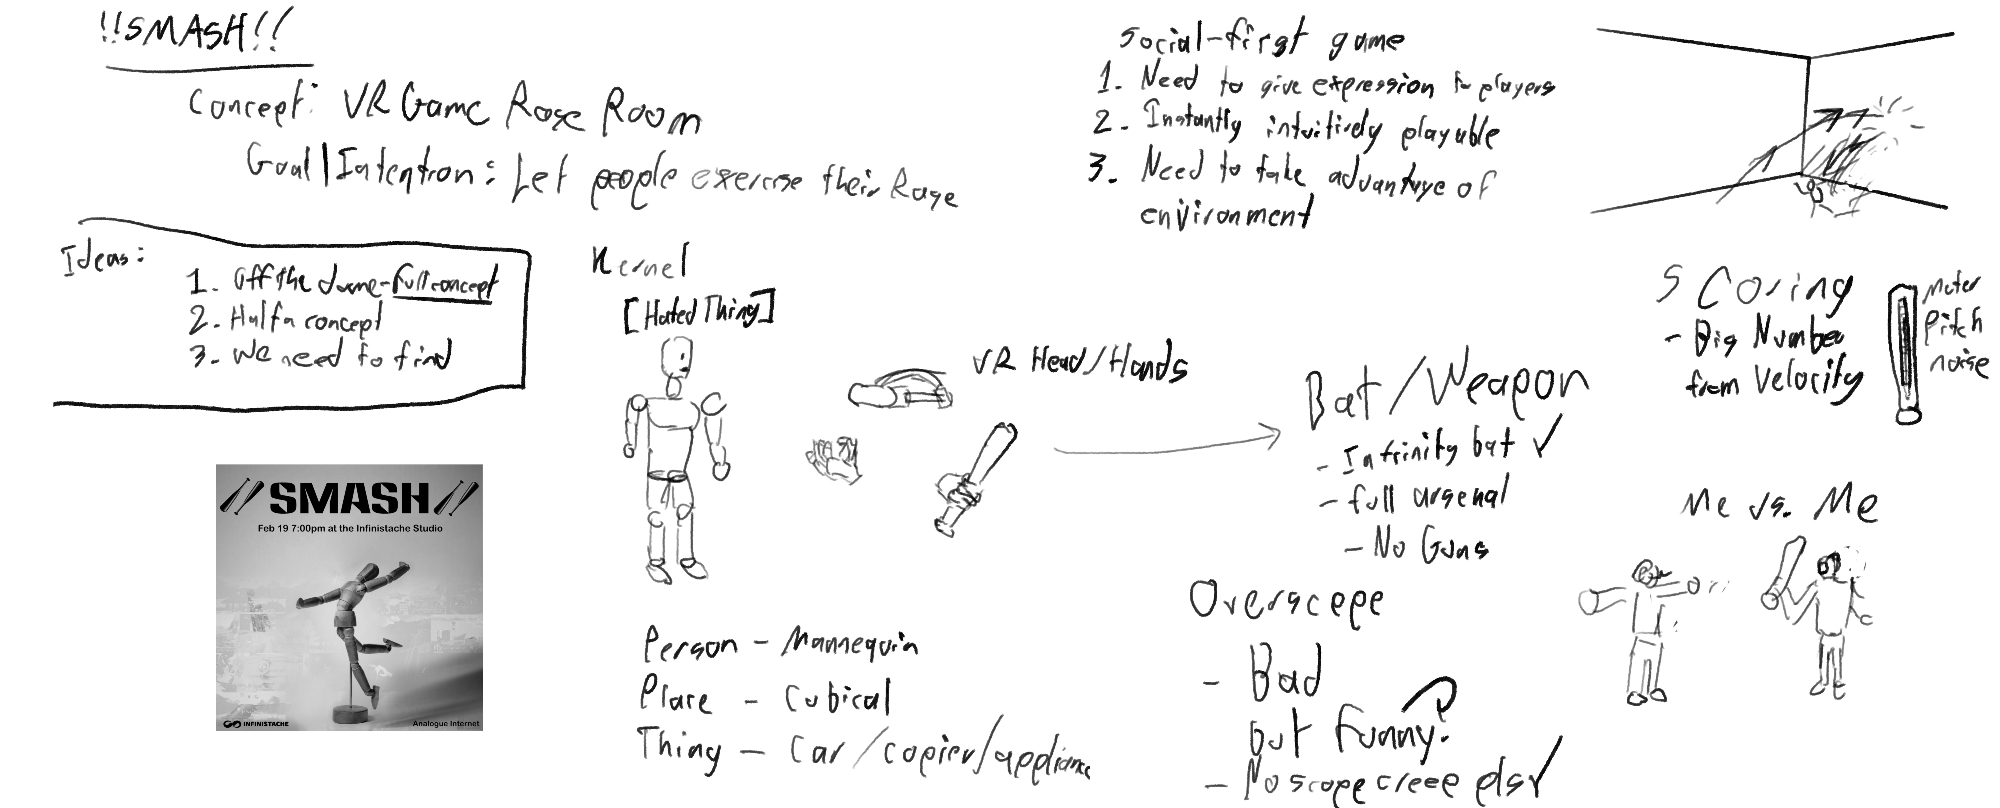 !!SMASH!!
Concept: VR Game Rage Room
Goal/Intention: Let people exercise their Rage
Ideas:
1. Off the dome - full concept
2. Half a concept
3. We need to find
//SMASH//
Feb 19 7:00pm at the Infinistache Studio
INFINISTACHE
Analogue Internet
Kernel
[Hated Thing]
VR Head/Hands
Person - Mannequin
Place - Cubical
Thing - Car/copier/appliance
Social-first game
1. Need to give expression to players
2. Instantly intuitively playable
3. Need to take advantage of
environment
Bat/Weapon
- Infinity bat ✓
- full arsenal
- No Guns
Overscope
- Bad
but funny?
- No scope creep pls ✓
Scoring
- Big Number
from Velocity
Meter
pitch
noise
Me vs. Me